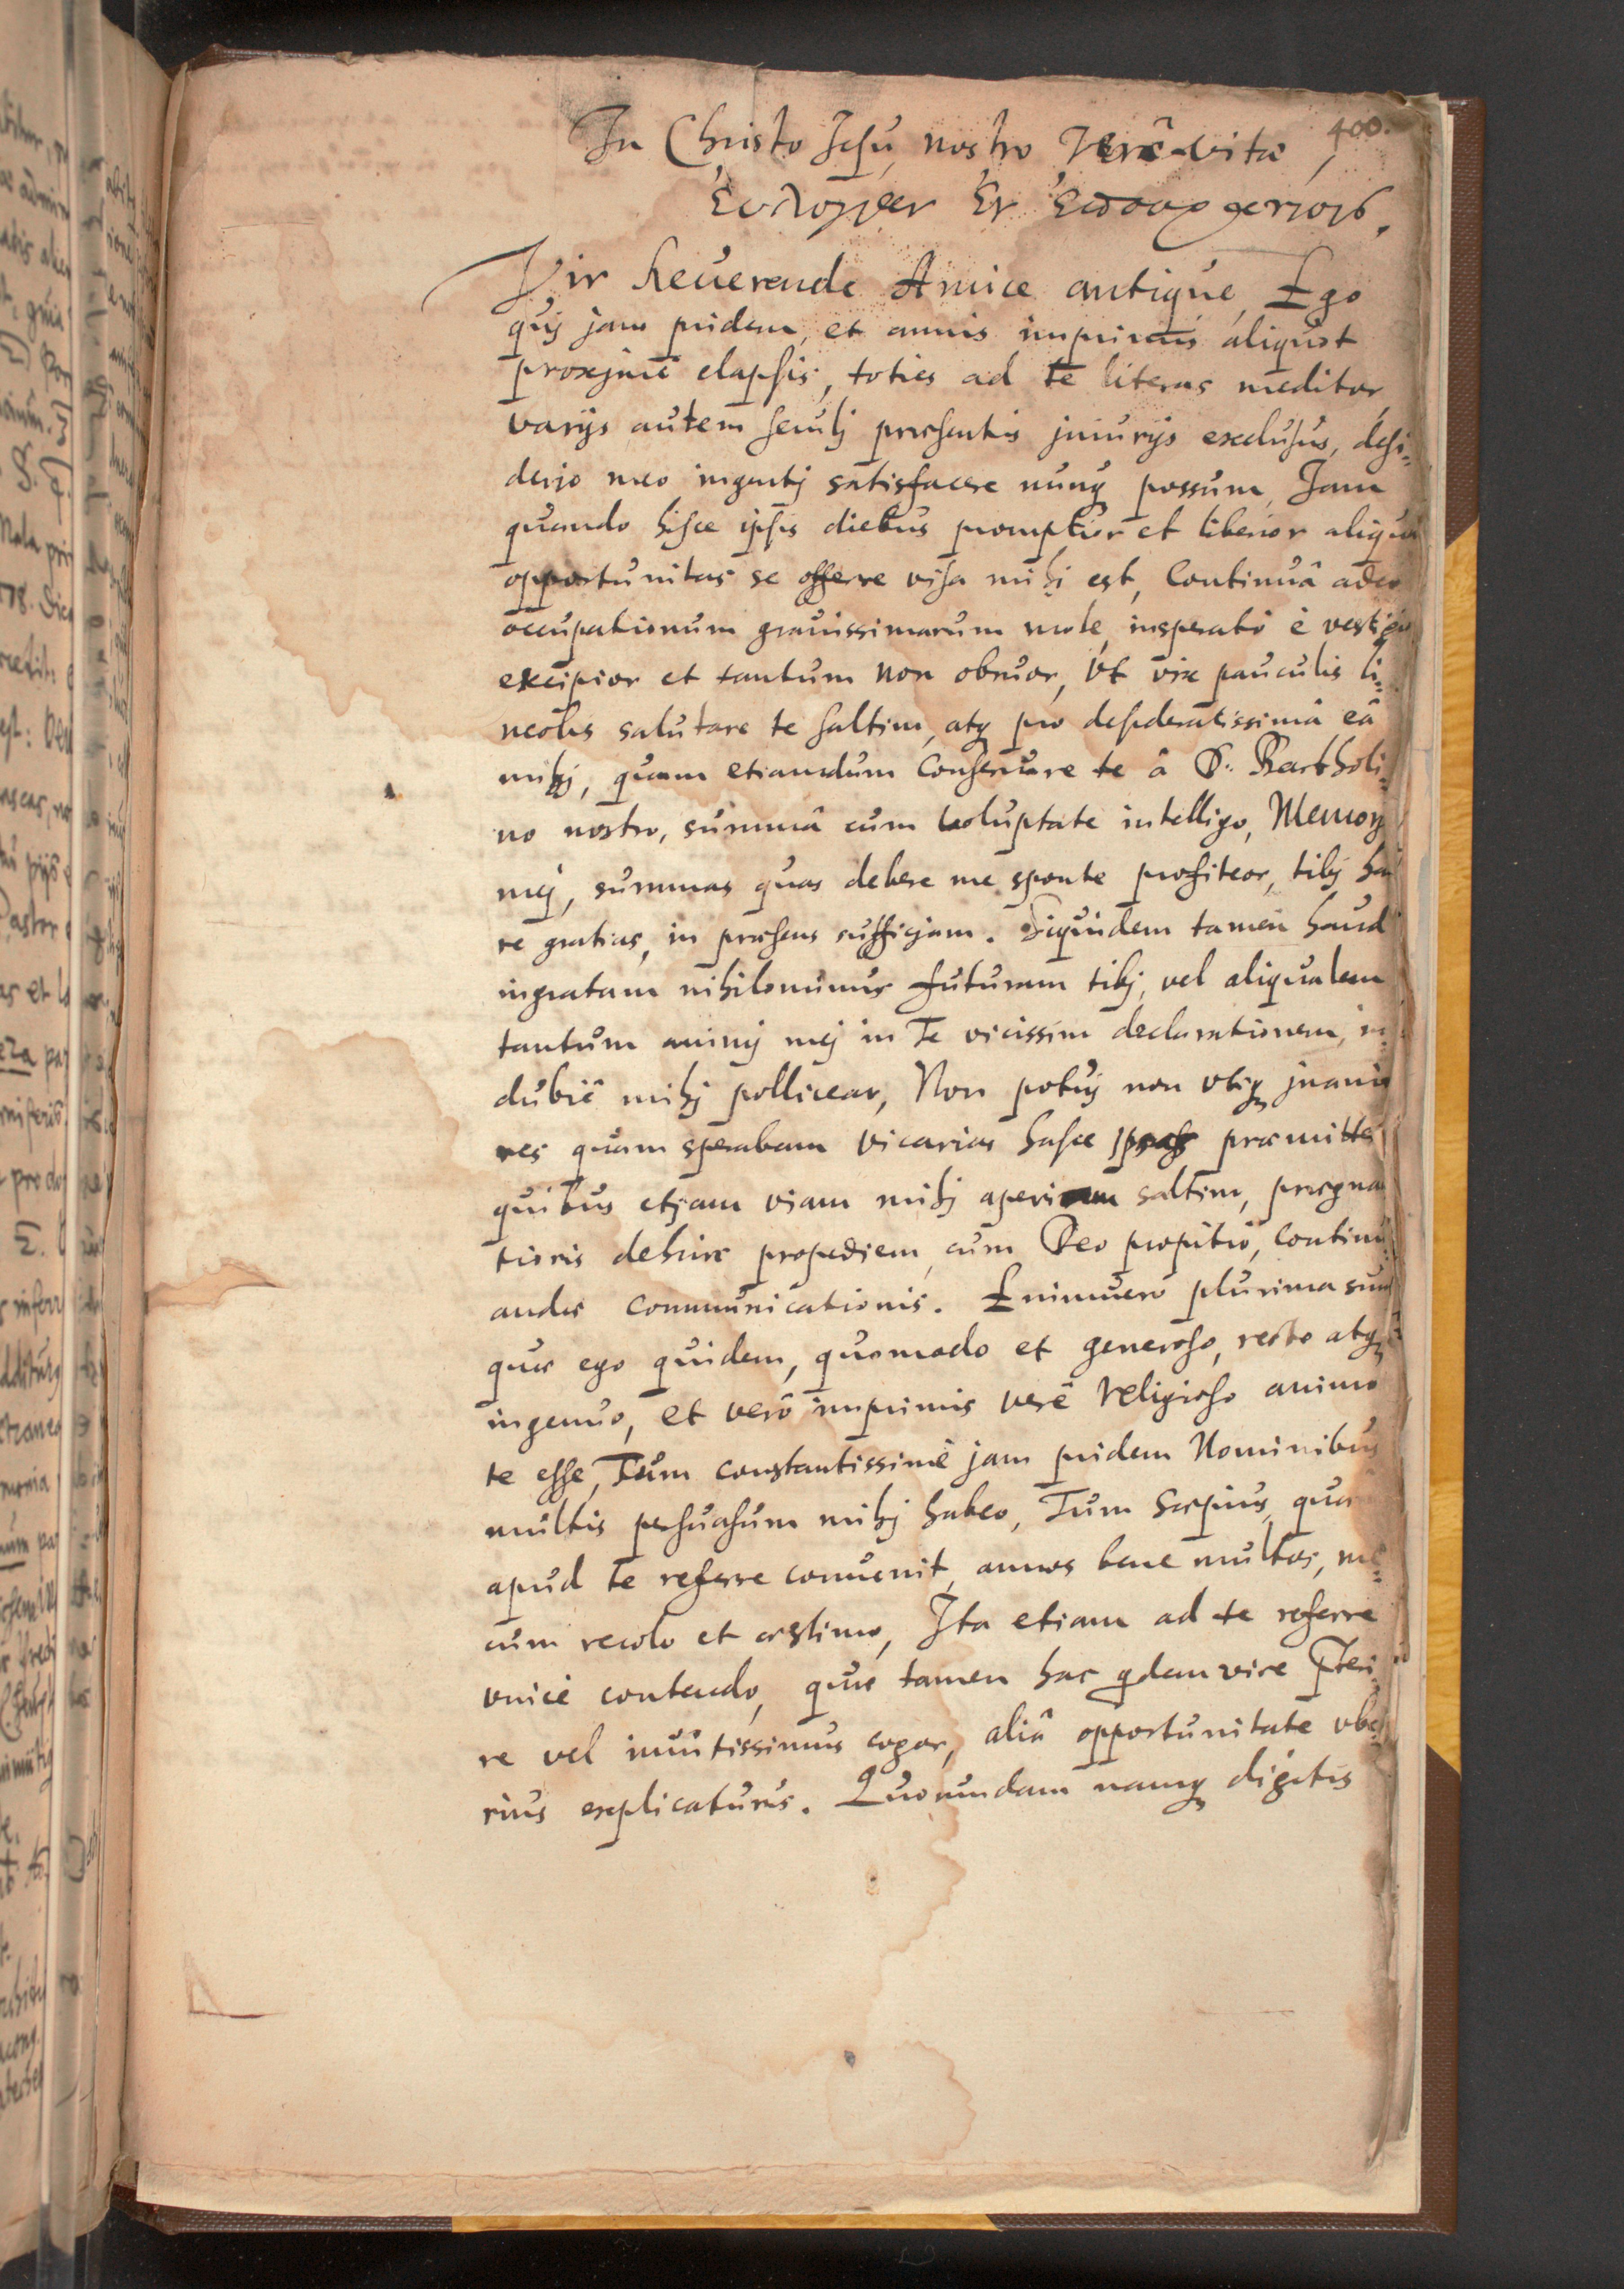 400.
In Christo Jesu nostro Verâ vitâ,
Vir Reuerende Amice antique, Ego
quj jam pridem, et annis inprimis aliquot
proxjmè elapsis, toties ad te literas meditor,
varijs autem seculj præsentis jniurijs exclusus, desi⸗
derjo meo ingentj satisfacere nunq possum, Jam
quando hisce ipsis diebus promptior et liberior aliqua
opportunitas se offerre visa mihj est, Continuâ adeo
occupationum grauissimarum mole, insperatò è vestigio
excipior et tantum non obruor, Vt vix pauculis li⸗
neolis salutare te saltim, atq pro desideratissimâ eâ
mihj, quam etiamdum Conseruare te â D. Bartholi⸗
no nostro, summâ cum Voluptate intelligo, Memoriâ
mej, summas quas debere me sponte profiteor, tibj ha
re gratias, in præsens sufficjam. Siquidem tamen haud
ingratam nihilominus futuram tibj, vel aliqualem
tantum animj mej in Te vicissim declarationem, in
dubiè mihj pollicear, Non potuj non vtiq jnanio
res quàm sperabam vicarias hasce præmitte
quibus etjam viam mihj aperiam saltim, prægna
tioris dehinc propediem, cum Deo propitio, Continu
andæ Communicationis. Enimuerò plurima sunt
quæ ego quidem, quomodo et generoso, recto atq
ingenuo, et verò inprimis verè religioso animo
te esse, Tum constantissimè jam pridem Nominibus
multis persuasum mihj habeo, Tum sæpius, quàm
apud te referre conuenit, annos bene multos, me⸗
cum recolo et æstimo, Ita etiam ad te referre
vnicè contendo, quæ tamen hac qdem vice
re vel inuitissimus cogor, aliâ opportunitate vbe
rius explicaturus. Quorundam namq digitis